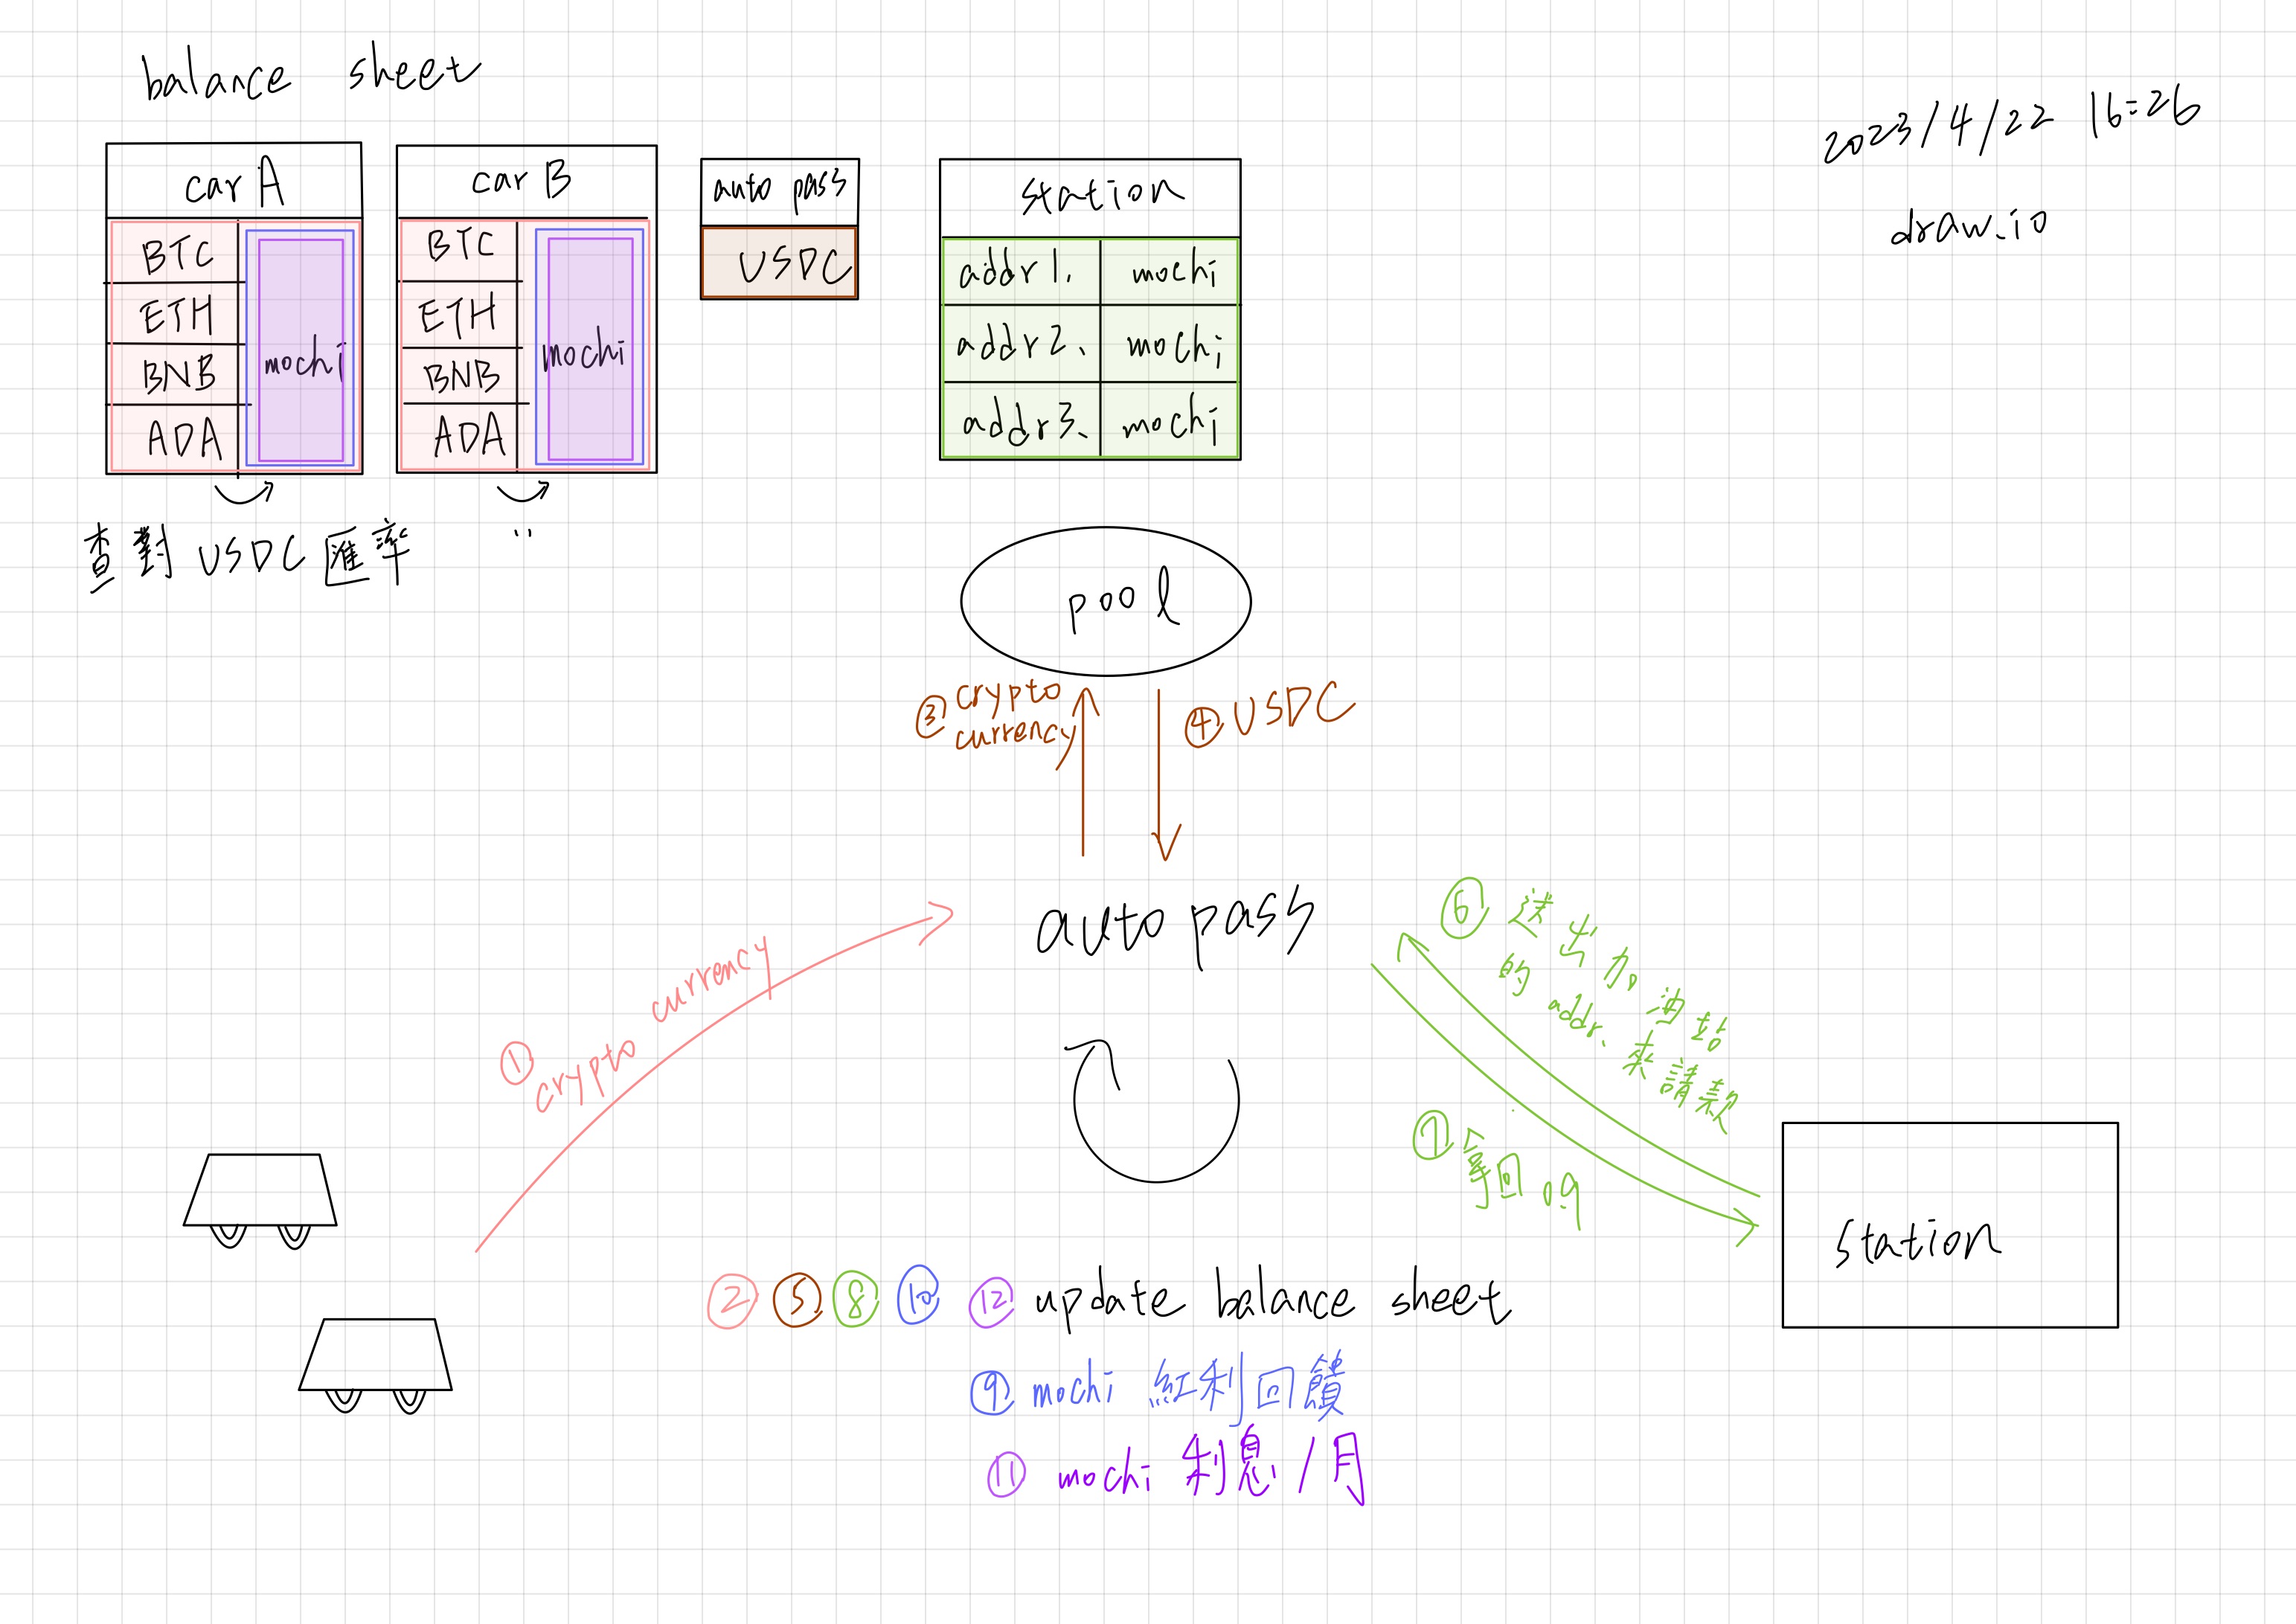 balance sheet
2023/4/22 16:26
draw.io
car A
BTC
ETH
BNB
ADA
mochi
car B
BTC
ETH
BNB
ADA
mochi
auto pass
USDC
station
addr1. mochi
addr2. mochi
addr3. mochi
查對 USDC 匯率
"
pool
③ crypto
currency
④ USDC
auto pass
① crypto currency
⑥ 送出加油站
的 addr. 來請款
⑦ 等回
station
② ⑤ ⑧ ⑩ ⑫ update balance sheet
⑨ mochi 紅利回饋
⑪ mochi 利息/月